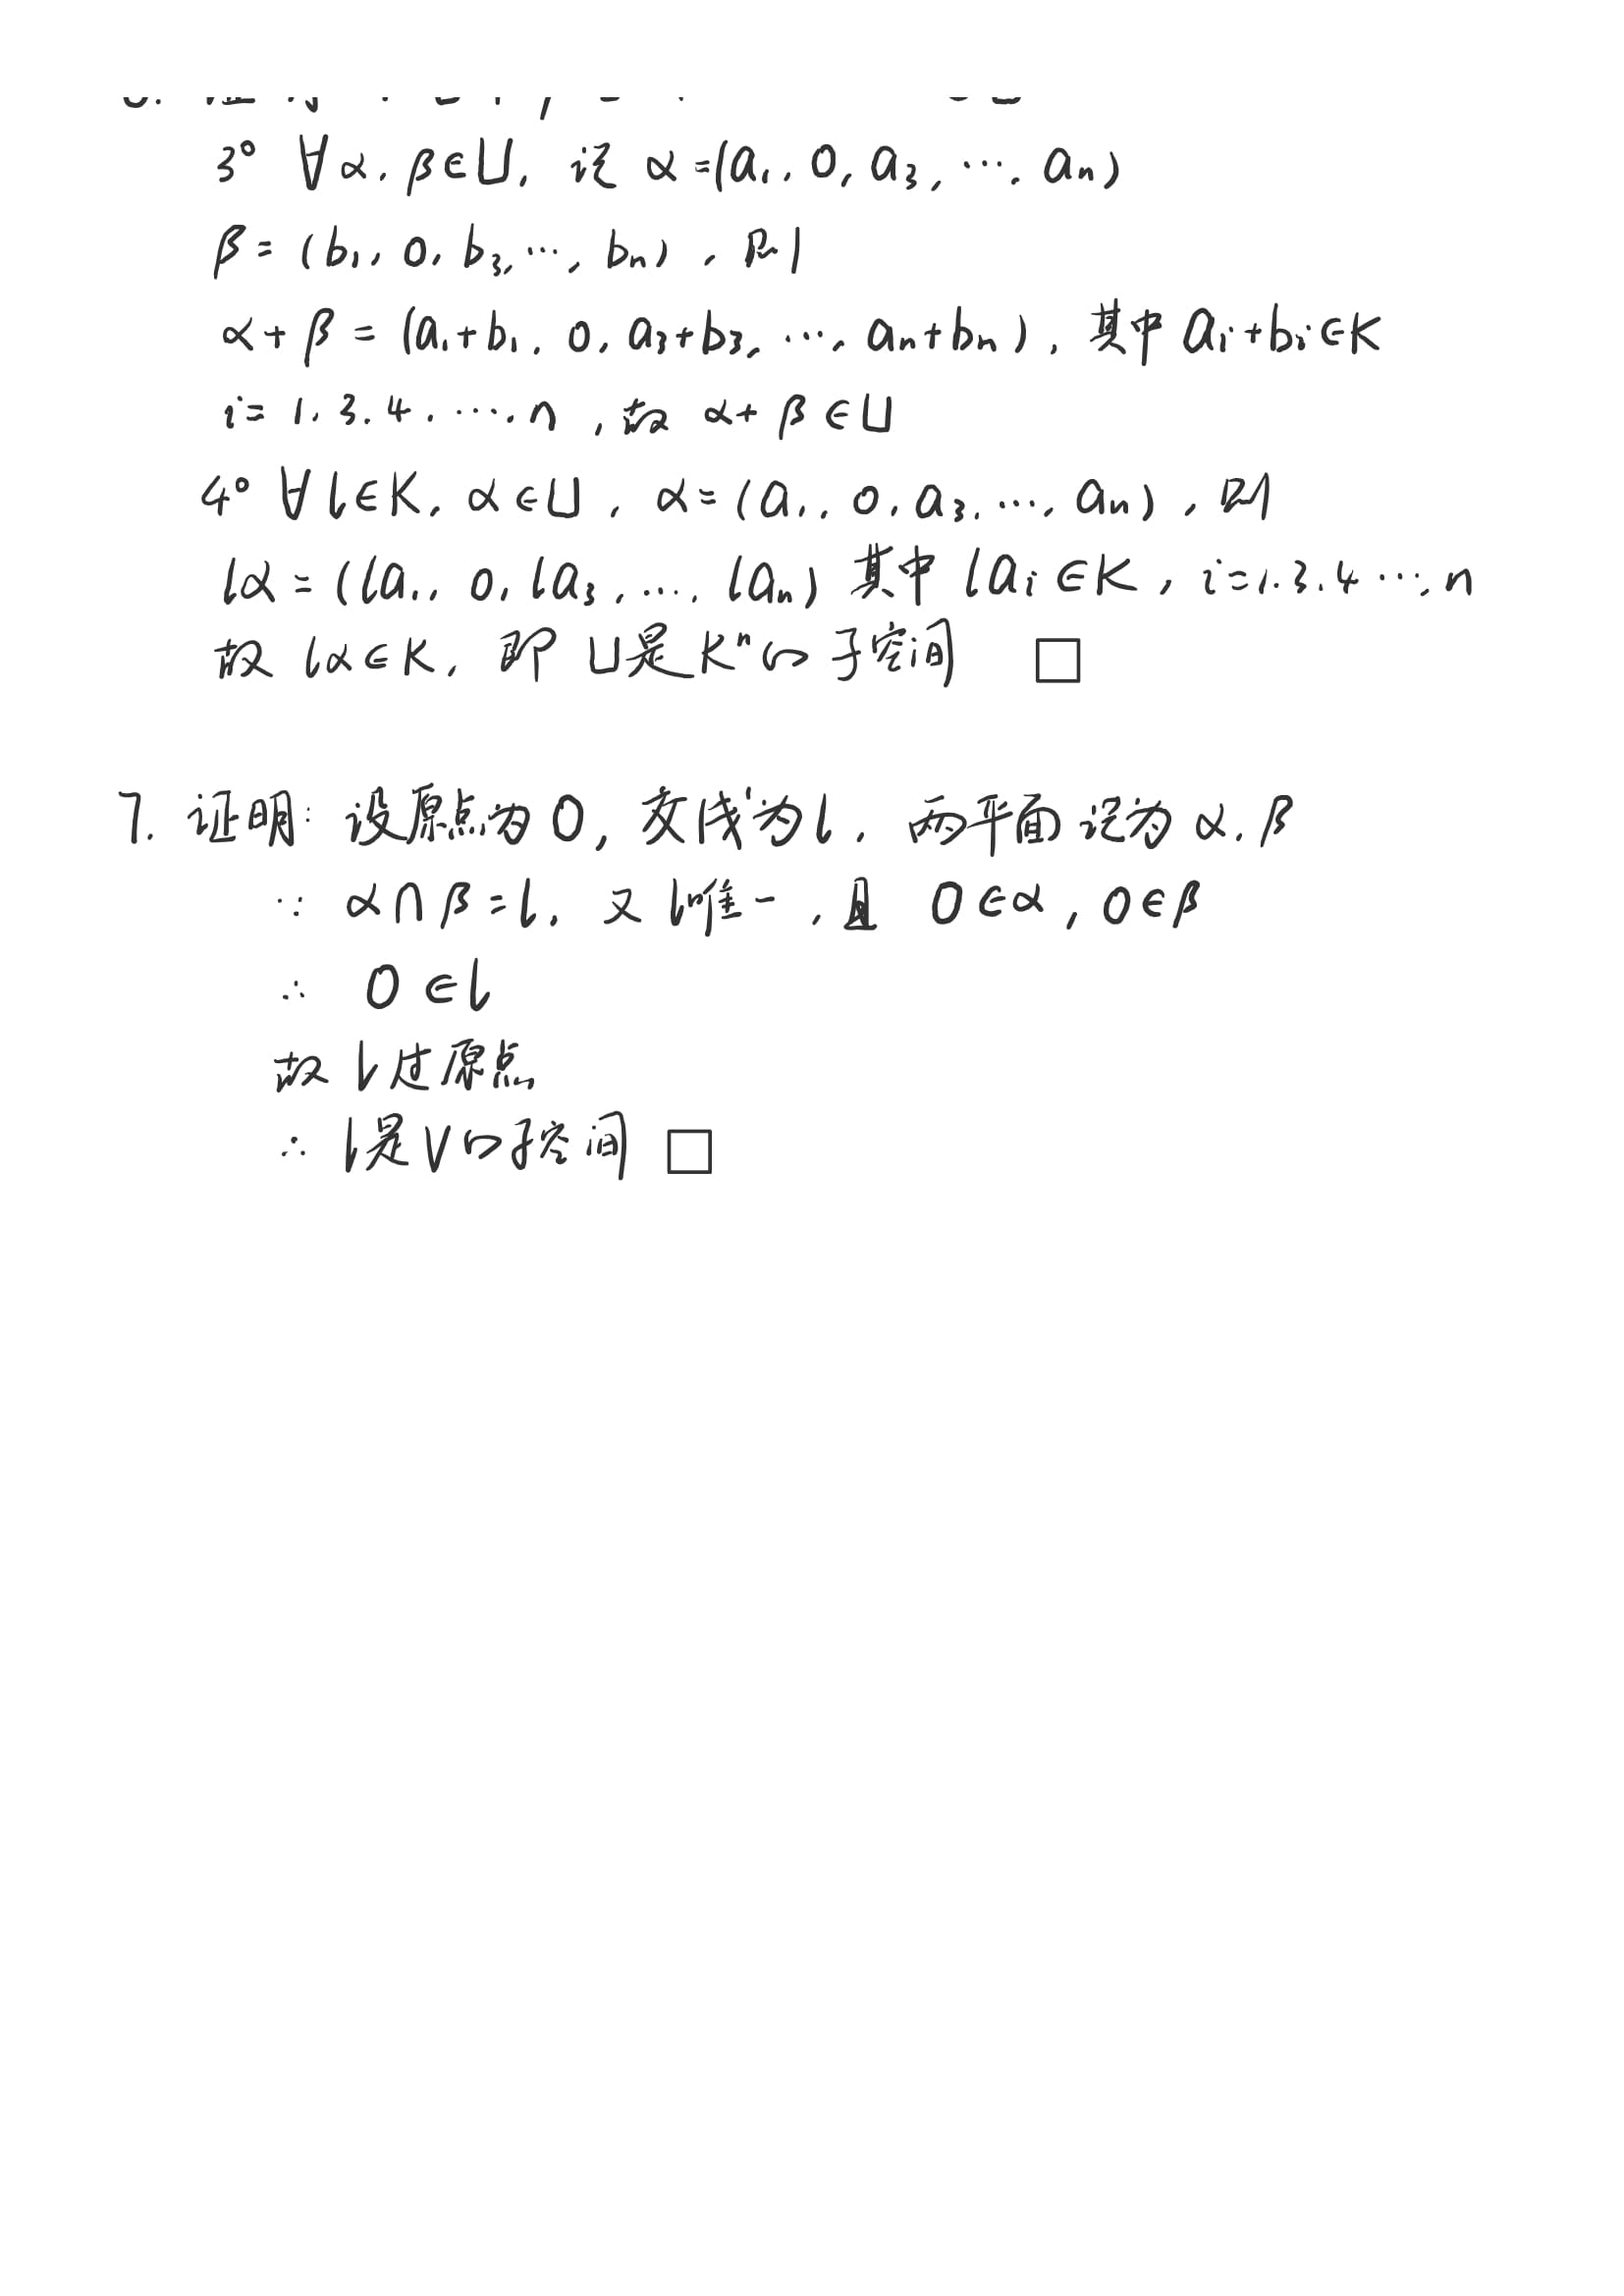 3° ∀α, β∈U, 设 α=(a₁, 0, a₃, …, aₙ)
β=(b₁, 0, b₃, …, bₙ), 则
α+β=(a₁+b₁, 0, a₃+b₃, …, aₙ+bₙ), 其中 aᵢ+bᵢ∈K
i=1.3.4.….n ,故 α+β∈U
4° ∀l∈K, α∈U, α=(a₁, 0, a₃, …, aₙ), 则
lα=(la₁, 0, la₃, …, laₙ) 其中 laᵢ∈K, i=1.3.4…, n
故 lα∈K, 即 U是Kⁿの子空间 □
7. 证明: 设原点为O, 交线为l, 两平面记为α.β
∵ α∩β=l, 又l唯一, 且 O∈α, O∈β
∴ O∈l
故l过原点
∴ l是Vの子空间 □